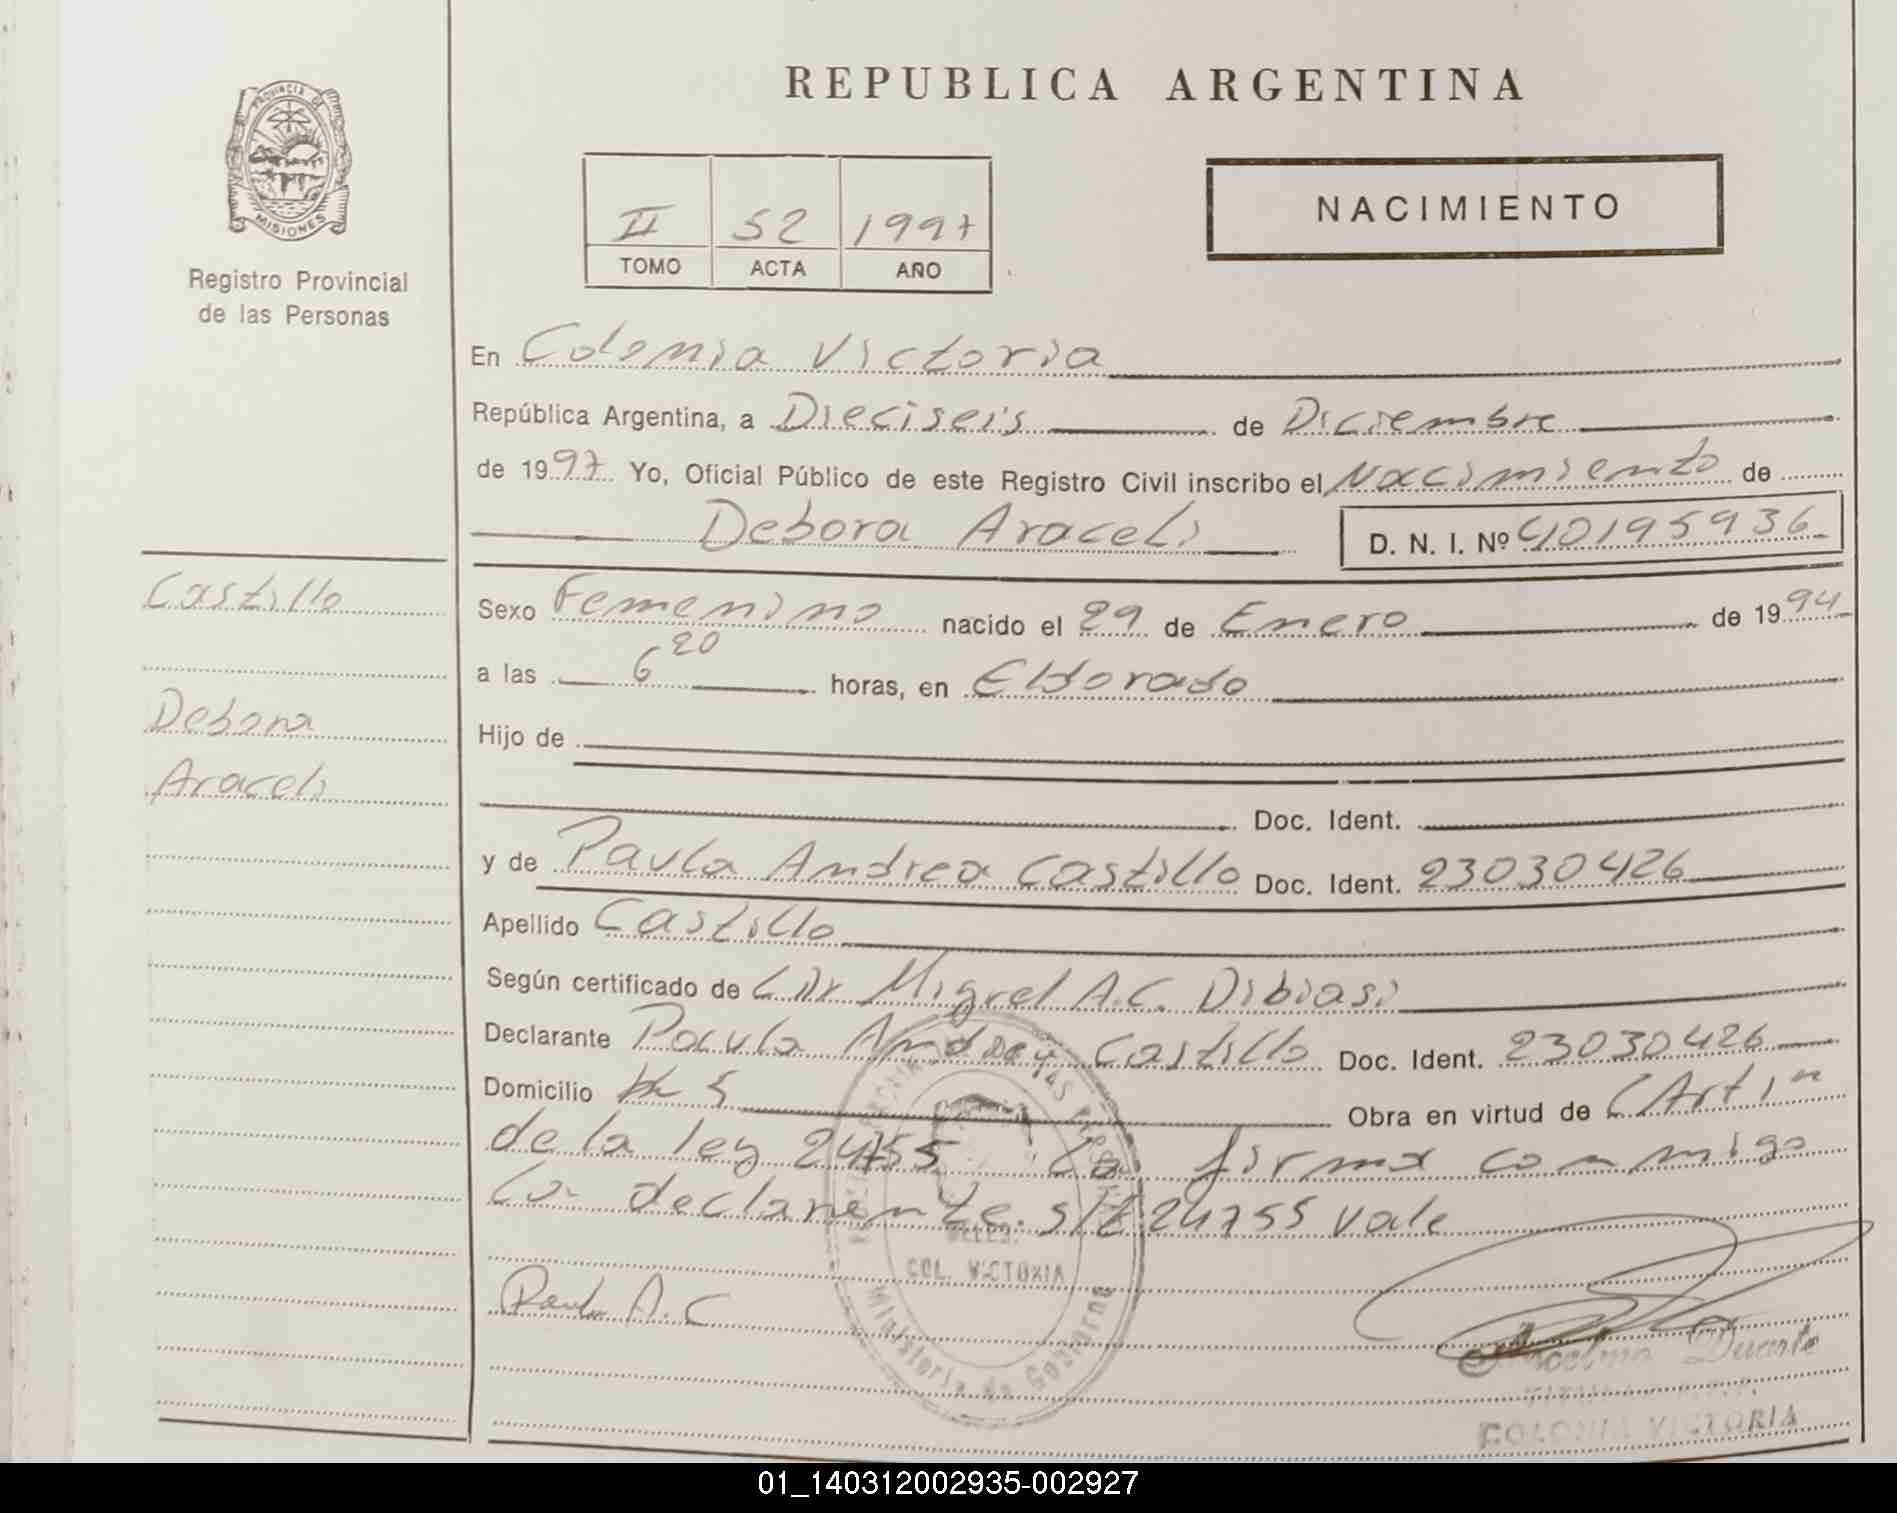 REPUBLICA ARGENTINA
PROVINCIA DE
MISIONES
Registro Provincial
de las Personas
II 52 1997
TOMO ACTA AÑO
NACIMIENTO
En Colonia Victoria
República Argentina, a Dieciseis de Diciembre
de 1997 Yo, Oficial Público de este Registro Civil inscribo el Nacimiento de
Debora Araceli D. N. I. Nº 40195936
Castillo
Debora
Araceli
Sexo Femenino nacido el 29 de Enero de 1994
a las 6 20 horas, en Eldorado
Hijo de
Doc. Ident.
y de Paula Andrea Castillo Doc. Ident. 23030426
Apellido Castillo
Según certificado de Dr Miguel A.C. Dibiasi
Declarante Paula Andrea Castillo Doc. Ident. 23030426
Domicilio Km 5 Obra en virtud de Art 1
de la ley 24755 firma conmigo
La declarante. s/E 24755 vale
COL. VICTORIA
Ministerio de Gobierno
Paula A. C
Duarte
COLONIA VICTORIA
01_140312002935-002927